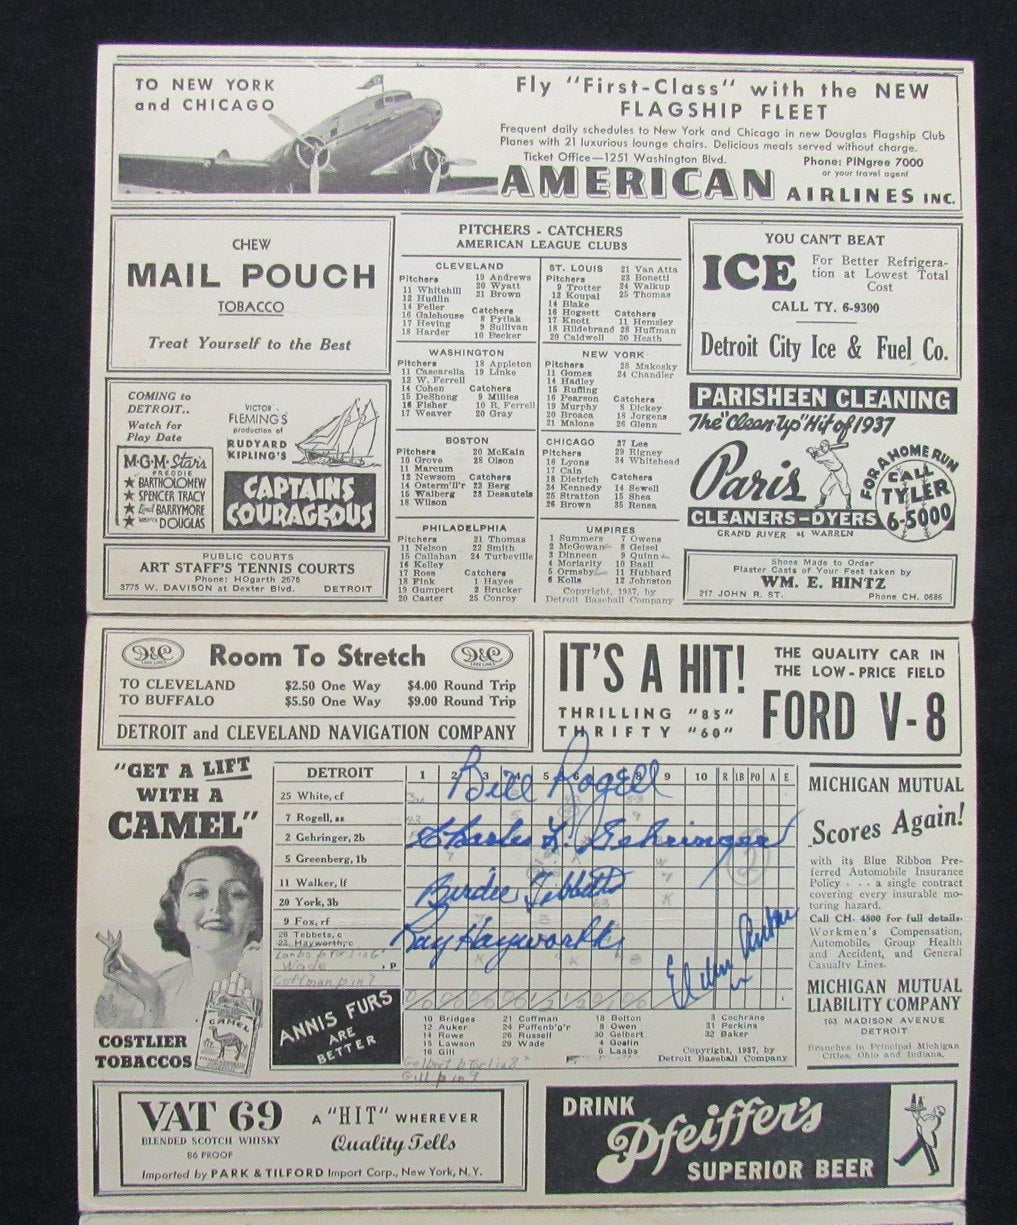 TO NEW YORK
and CHICAGO
Fly "First-Class" with the NEW
FLAGSHIP FLEET
Frequent daily schedules to New York and Chicago in new Douglas Flagship Club
Planes with 21 luxurious lounge chairs. Delicious meals served without charge.
Ticket Office—1251 Washington Blvd.
Phone: PINgree 7000
or your travel agent
AMERICAN AIRLINES INC.
CHEW
MAIL POUCH
TOBACCO
Treat Yourself to the Best
PITCHERS - CATCHERS
AMERICAN LEAGUE CLUBS
CLEVELAND
Pitchers
11 Whitehill
12 Hudlin
14 Feller
16 Galehouse
17 Heving
18 Harder
19 Andrews
20 Wyatt
21 Brown
Catchers
8 Pytlak
9 Sullivan
10 Becker
ST. LOUIS
Pitchers
9 Trotter
12 Koupal
14 Blake
16 Hogsett
17 Knott
18 Hildebrand
20 Caldwell
21 Van Atta
23 Bonetti
24 Walkup
25 Thomas
Catchers
11 Hemsley
28 Huffman
30 Heath
WASHINGTON
Pitchers
11 Cascarella
12 W. Ferrell
14 Cohen
15 DeShong
16 Fisher
17 Weaver
18 Appleton
19 Linke
Catchers
9 Millies
10 R. Ferrell
20 Gray
NEW YORK
Pitchers
11 Gomez
14 Hadley
15 Ruffing
16 Pearson
19 Murphy
20 Broaca
21 Malone
28 Makosky
24 Chandler
Catchers
8 Dickey
18 Jorgens
26 Glenn
BOSTON
Pitchers
10 Grove
11 Marcum
12 Newsom
14 Osterm'll'r
15 Walberg
18 Wilson
20 McKain
28 Olson
Catchers
22 Berg
23 Desautels
CHICAGO
Pitchers
16 Lyons
17 Cain
18 Dietrich
24 Kennedy
25 Stratton
26 Brown
27 Lee
29 Rigney
34 Whitehead
Catchers
14 Sewell
15 Shea
35 Rensa
PHILADELPHIA
Pitchers
11 Nelson
15 Callahan
16 Kelley
17 Ross
18 Fink
19 Gumpert
20 Caster
21 Thomas
22 Smith
24 Turbeville
Catchers
1 Hayes
2 Brucker
25 Conroy
UMPIRES
1 Summers
2 McGowan
3 Dinneen
4 Moriarity
5 Ormsby
6 Kolls
7 Owens
8 Geisel
9 Quinn
10 Basil
11 Hubbard
12 Johnston
Copyright, 1937, by
Detroit Baseball Company
YOU CAN'T BEAT
ICE
For Better Refrigera-
tion at Lowest Total
Cost
CALL TY. 6-9300
Detroit City Ice & Fuel Co.
COMING to
DETROIT..
Watch for
Play Date
VICTOR
FLEMING'S
production of
RUDYARD
KIPLING'S
M·G·M·Stars
FREDDIE
BARTHOLOMEW
SPENCER TRACY
Lionel BARRYMORE
MELVYN DOUGLAS
CAPTAINS
COURAGEOUS
PARISHEEN CLEANING
The "Clean-Up" Hit of 1937
Paris
CLEANERS-DYERS
GRAND RIVER at WARREN
FOR A HOME RUN
CALL
TYLER
6-5000
PUBLIC COURTS
ART STAFF'S TENNIS COURTS
Phone: HOgarth 2675
3775 W. DAVISON at Dexter Blvd. DETROIT
Shoes Made to Order
Plaster Casts of Your Feet taken by
WM. E. HINTZ
217 JOHN R. ST. Phone CH. 0685
D&C
LAKE LINES
Room To Stretch
D&C
LAKE LINES
TO CLEVELAND $2.50 One Way $4.00 Round Trip
TO BUFFALO $5.50 One Way $9.00 Round Trip
DETROIT and CLEVELAND NAVIGATION COMPANY
IT'S A HIT!
THRILLING "85"
THRIFTY "60"
THE QUALITY CAR IN
THE LOW-PRICE FIELD
FORD V-8
"GET A LIFT
WITH A
CAMEL"
CAMEL
COSTLIER
TOBACCOS
DETROIT 1 2 3 4 5 6 7 8 9 10 R 1B PO A E
25 White, cf
7 Rogell, ss
2 Gehringer, 2b
5 Greenberg, 1b
11 Walker, lf
20 York, 3b
9 Fox, rf
28 Tebbets, c
23 Hayworth, c
Wade , P
Coffman p in 7
Bill Rogell
Charles L. Gehringer
Birdie Tebbetts
Ray Hayworth
Elden Auker
ANNIS FURS
ARE
BETTER
10 Bridges
12 Auker
14 Rowe
15 Lawson
16 Gill
21 Coffman
24 Poffenb'g'r
26 Russell
29 Wade
18 Bolton
8 Owen
30 Gelbert
4 Goslin
6 Laabs
3 Cochrane
31 Perkins
32 Baker
Copyright, 1937, by
Detroit Baseball Company
Gill p in 9
MICHIGAN MUTUAL
Scores Again!
with its Blue Ribbon Pre-
ferred Automobile Insurance
Policy . . . a single contract
covering every insurable mo-
toring hazard.
Call CH- 4800 for full details.
Workmen's Compensation,
Automobile, Group Health
and Accident, and General
Casualty Lines.
MICHIGAN MUTUAL
LIABILITY COMPANY
163 MADISON AVENUE
DETROIT
Branches in Principal Michigan
Cities, Ohio and Indiana.
VAT 69
BLENDED SCOTCH WHISKY
86 PROOF
A "HIT" WHEREVER
Quality Tells
Imported by PARK & TILFORD Import Corp., New York, N.Y.
DRINK
Pfeiffer's
SUPERIOR BEER